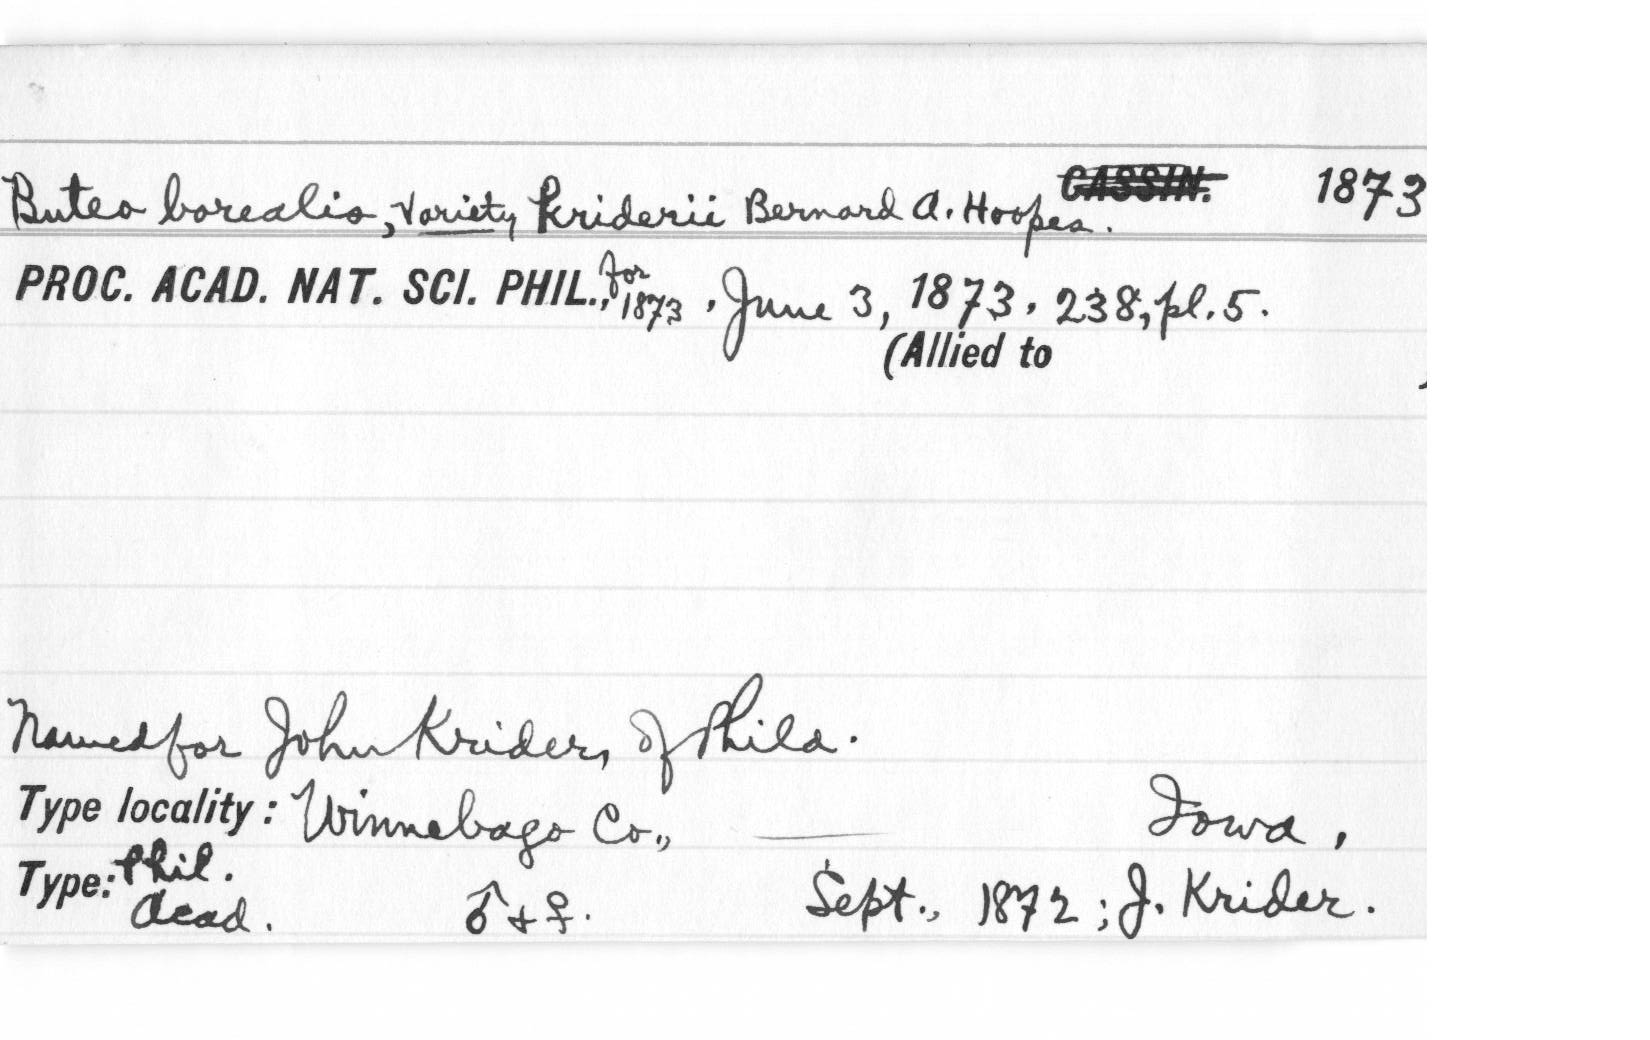 Buteo borealis, Variety Kriderii Bernard A. Hoopes. CASSIN. 1873
PROC. ACAD. NAT. SCI. PHIL., for 1873, June 3, 1873, 238, pl. 5.
(Allied to )
Named for John Krider, of Phila.
Type locality: Winnebago Co., — Iowa,
Type: Phil. Acad. ♂ + ♀. Sept., 1872; J. Krider.